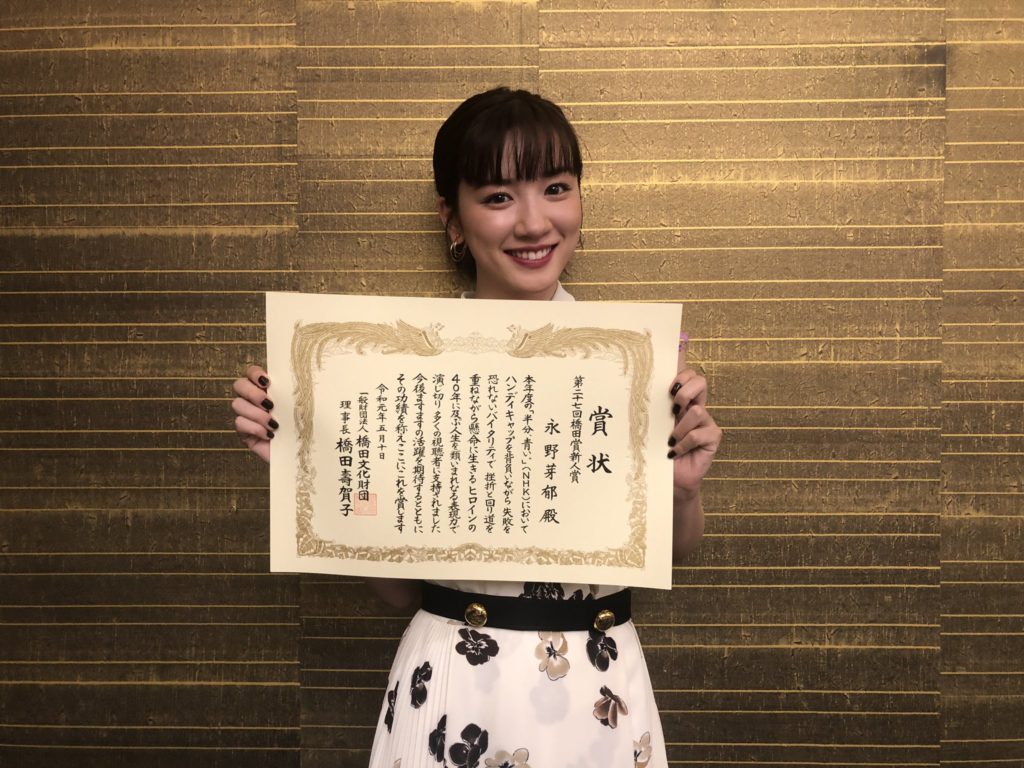 第二十七回橋田賞新人賞
賞状
永野芽郁殿
本年度の「半分、青い。」(NHK)において
ハンディキャップを背負いながら 失敗を
恐れないバイタリティで 挫折と回り道を
重ねながら懸命に生きるヒロインの
40年に及ぶ人生を類いまれなる表現力で
演じ切り 多くの視聴者に支持されました
今後ますますの活躍を期待するとともに
その功績を称えここにこれを賞します
令和元年五月十日
一般財団法人 橋田文化財団
理事長 橋田壽賀子